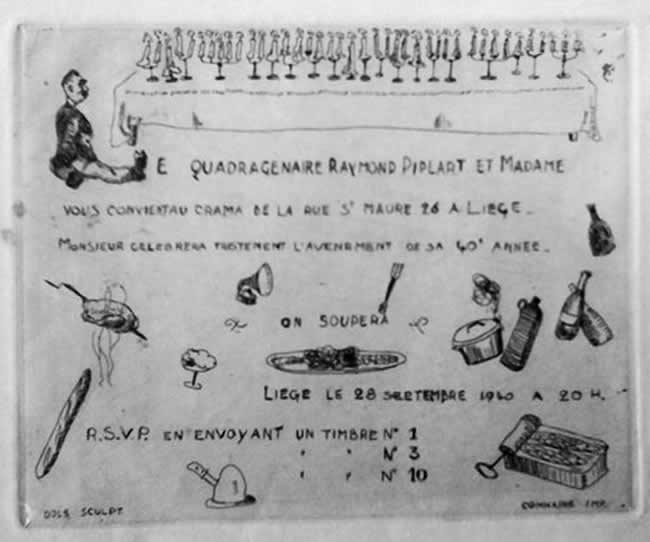 E QUADRAGENAIRE RAYMOND PIPLART ET MADAME
VOUS CONVIENT AU CRAMA DE LA RUE St MAURE 26 A LIEGE_
MONSIEUR CELEBRERA TRISTEMENT L'AVENEMENT DE SA 40e ANNEE_
ON SOUPERA
LIEGE LE 28 SEPTEMBRE 1940 A 20 H.
R.S.V.P. EN ENVOYANT UN TIMBRE N° 1
" " N° 3
" " N° 10
SCULPT
IMP.